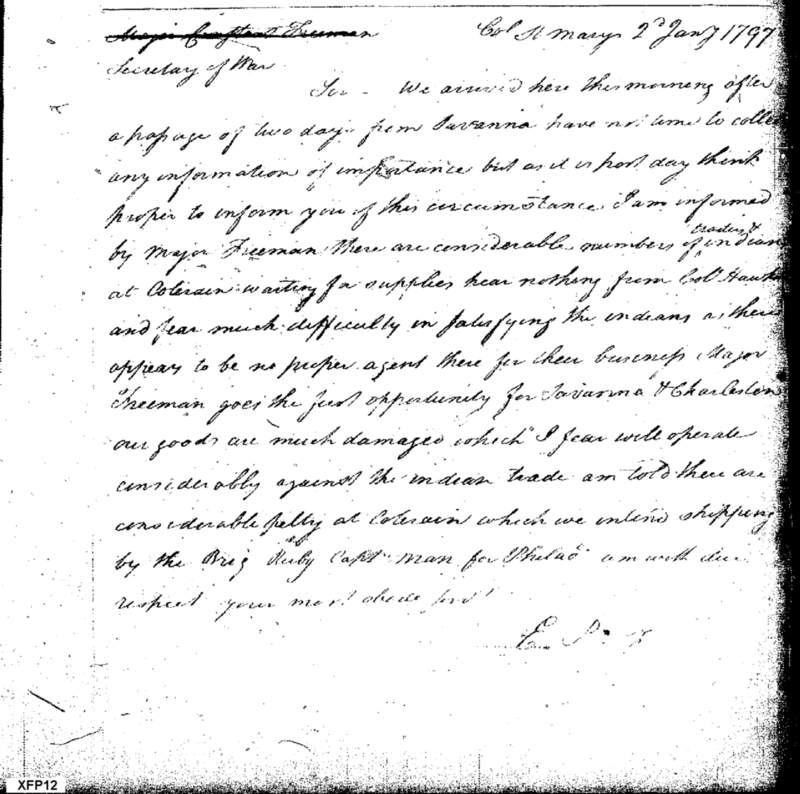 Major Constant Freeman
Col St Marys 2d Jany 1797
Secretary of War
Sir - We arrived here this morning after
a passage of two days from Savanna have not time to colle
any information of importance but as it is post day think
proper to inform you of this circumstance I am informed
by Major Freeman there are considerable numbers of traders & indian
at Colerain waiting for supplies hear nothing from Col Hawk
and fear much difficulty in satisfying the indians as there
appears to be no proper agent there for their business Major
Freeman goes the first opportunity for Savanna & Charleston
our goods are much damaged which I fear will operate
considerably against the indean trade am told there are
considerable peltry at Colerain which we intend shipping
by the Brig Ruby Capt Man for Philad am with due
respect your most obede servt
E P
XFP12